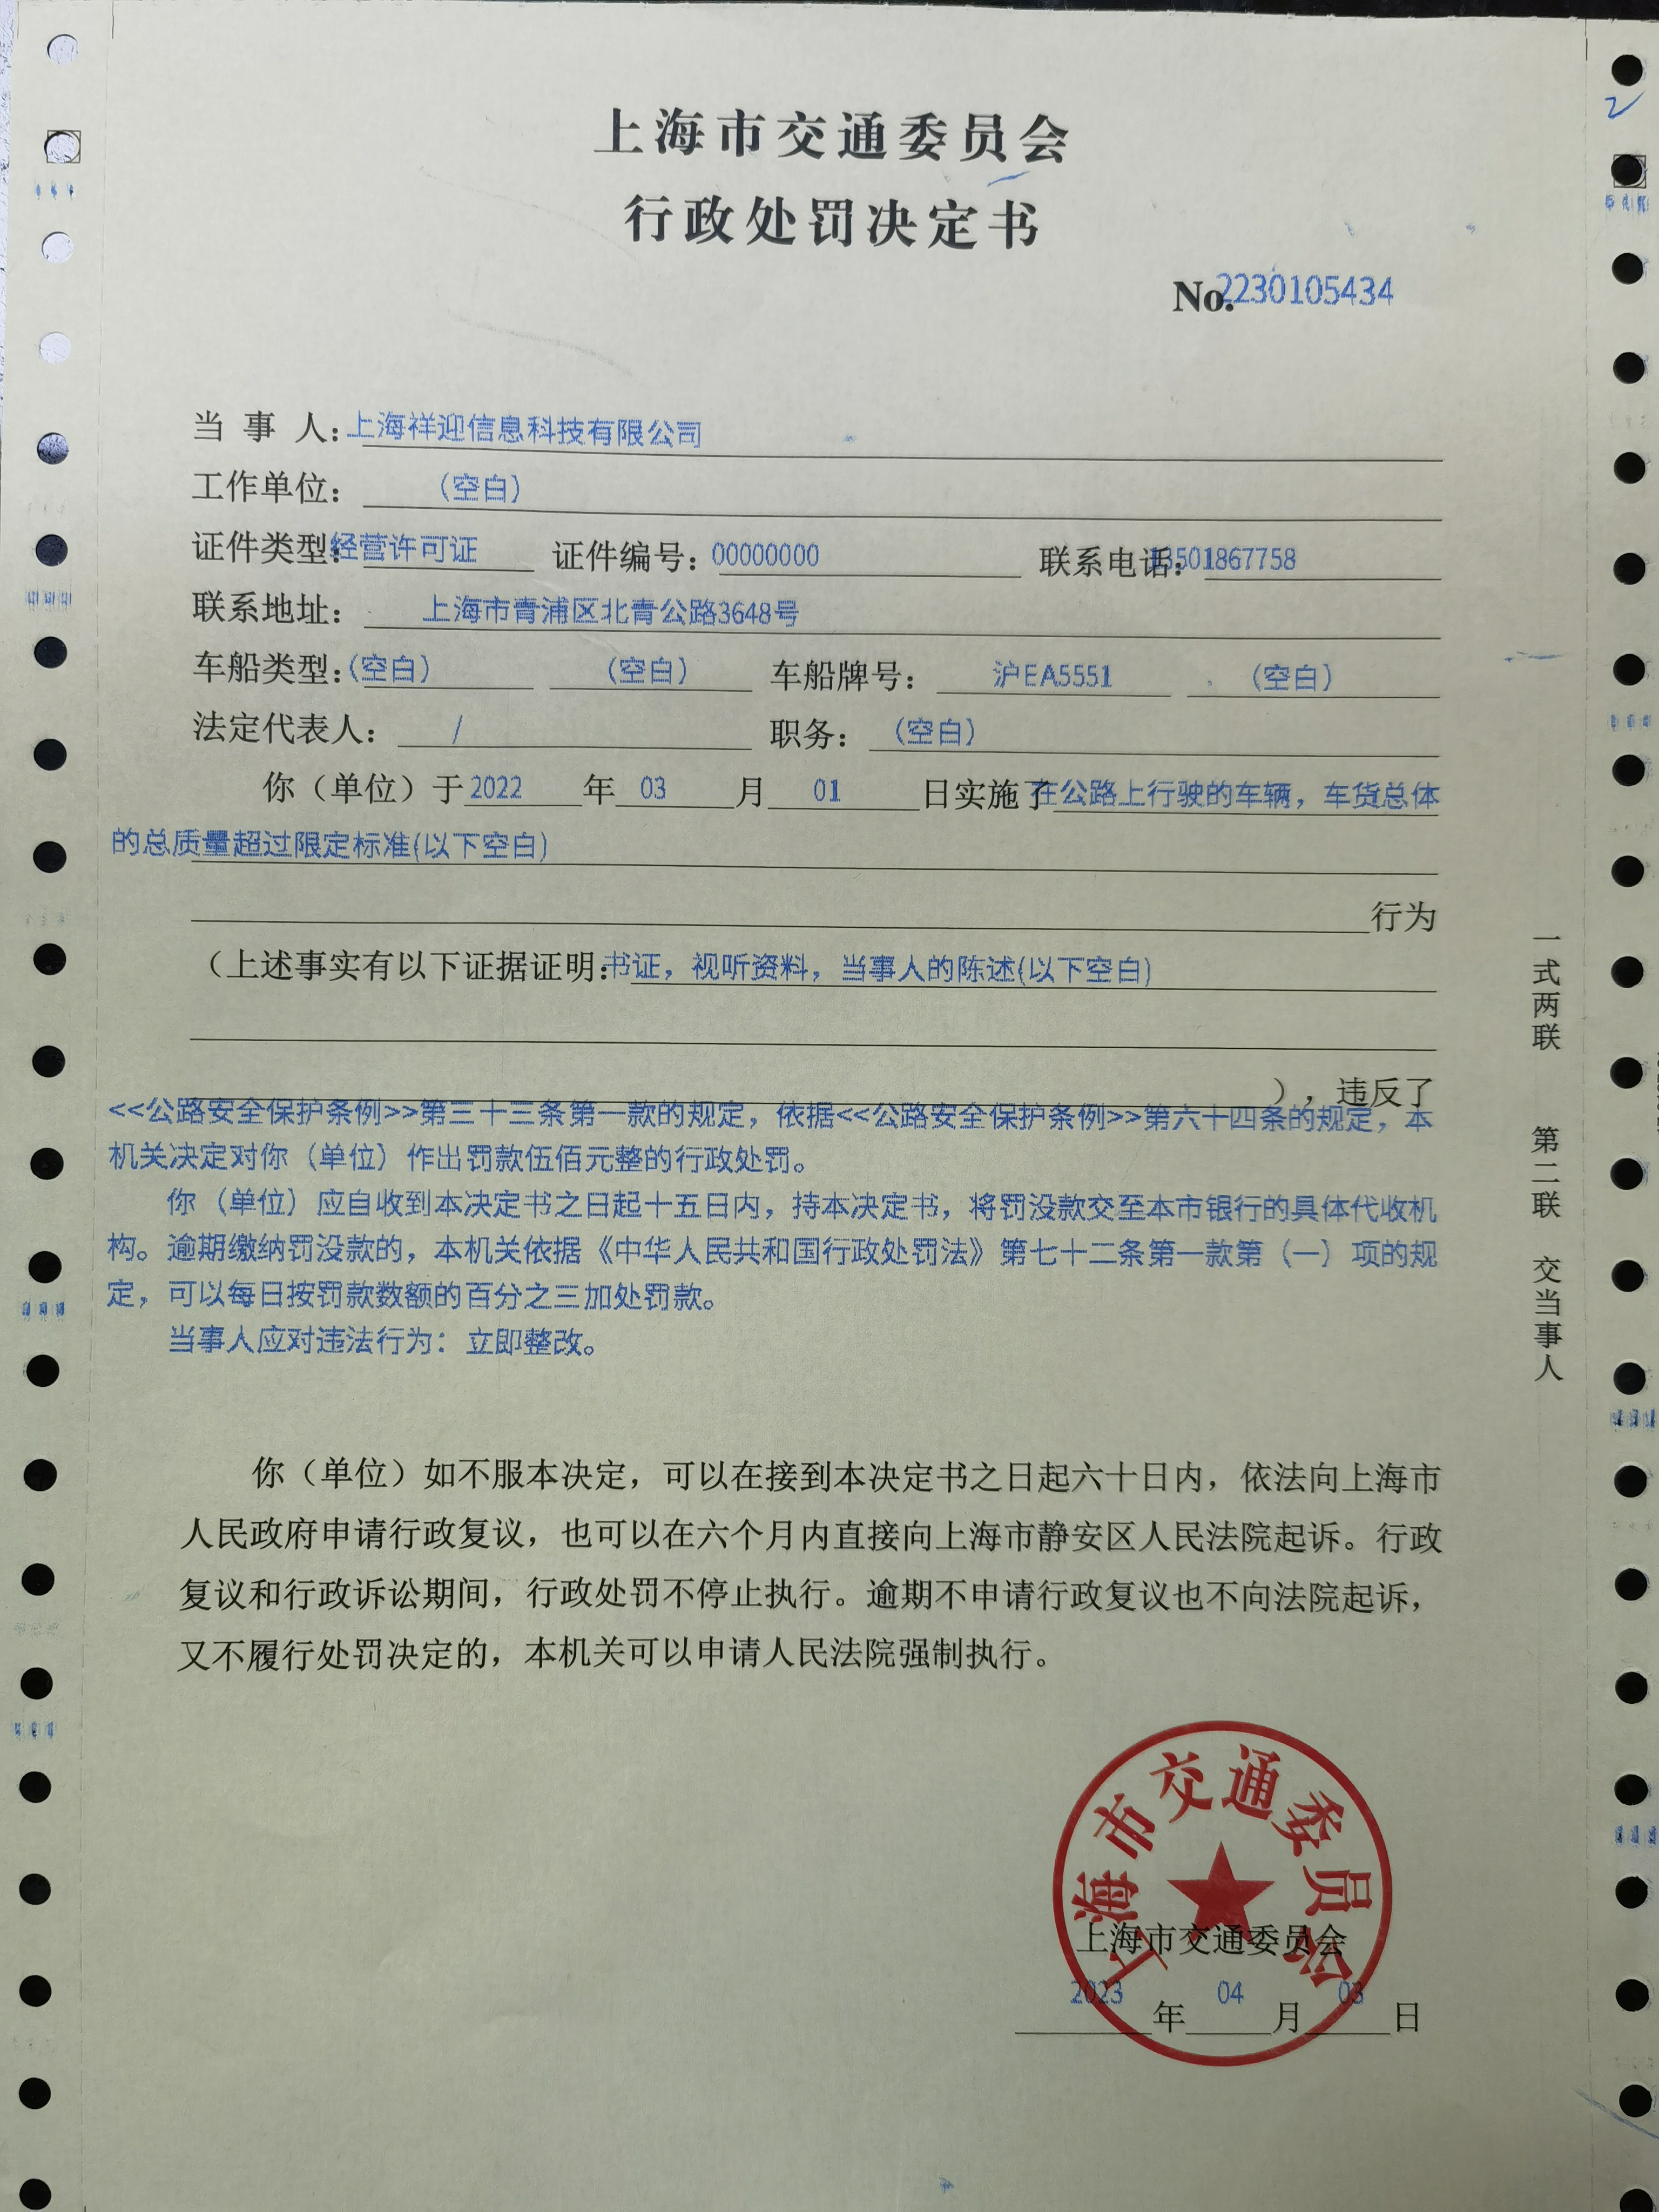 上海市交通委员会
行政处罚决定书
No.2230105434
当事人:上海祥迎信息科技有限公司
工作单位: (空白)
证件类型:经营许可证 证件编号:00000000 联系电话:13501867758
联系地址: 上海市青浦区北青公路3648号
车船类型:(空白) (空白) 车船牌号: 沪EA5551 (空白)
法定代表人: / 职务: (空白)
你（单位）于2022年03月01日实施了在公路上行驶的车辆，车货总体
的总质量超过限定标准(以下空白)
行为
（上述事实有以下证据证明:书证，视听资料，当事人的陈述(以下空白)
），违反了
<<公路安全保护条例>>第三十三条第一款的规定，依据<<公路安全保护条例>>第六十四条的规定，本
机关决定对你（单位）作出罚款伍佰元整的行政处罚。
你（单位）应自收到本决定书之日起十五日内，持本决定书，将罚没款交至本市银行的具体代收机
构。逾期缴纳罚没款的，本机关依据《中华人民共和国行政处罚法》第七十二条第一款第（一）项的规
定，可以每日按罚款数额的百分之三加处罚款。
当事人应对违法行为：立即整改。
你（单位）如不服本决定，可以在接到本决定书之日起六十日内，依法向上海市
人民政府申请行政复议，也可以在六个月内直接向上海市静安区人民法院起诉。行政
复议和行政诉讼期间，行政处罚不停止执行。逾期不申请行政复议也不向法院起诉，
又不履行处罚决定的，本机关可以申请人民法院强制执行。
上海市交通委员会
上海市交通委员会
2023年04月03日
一式两联 第二联 交当事人